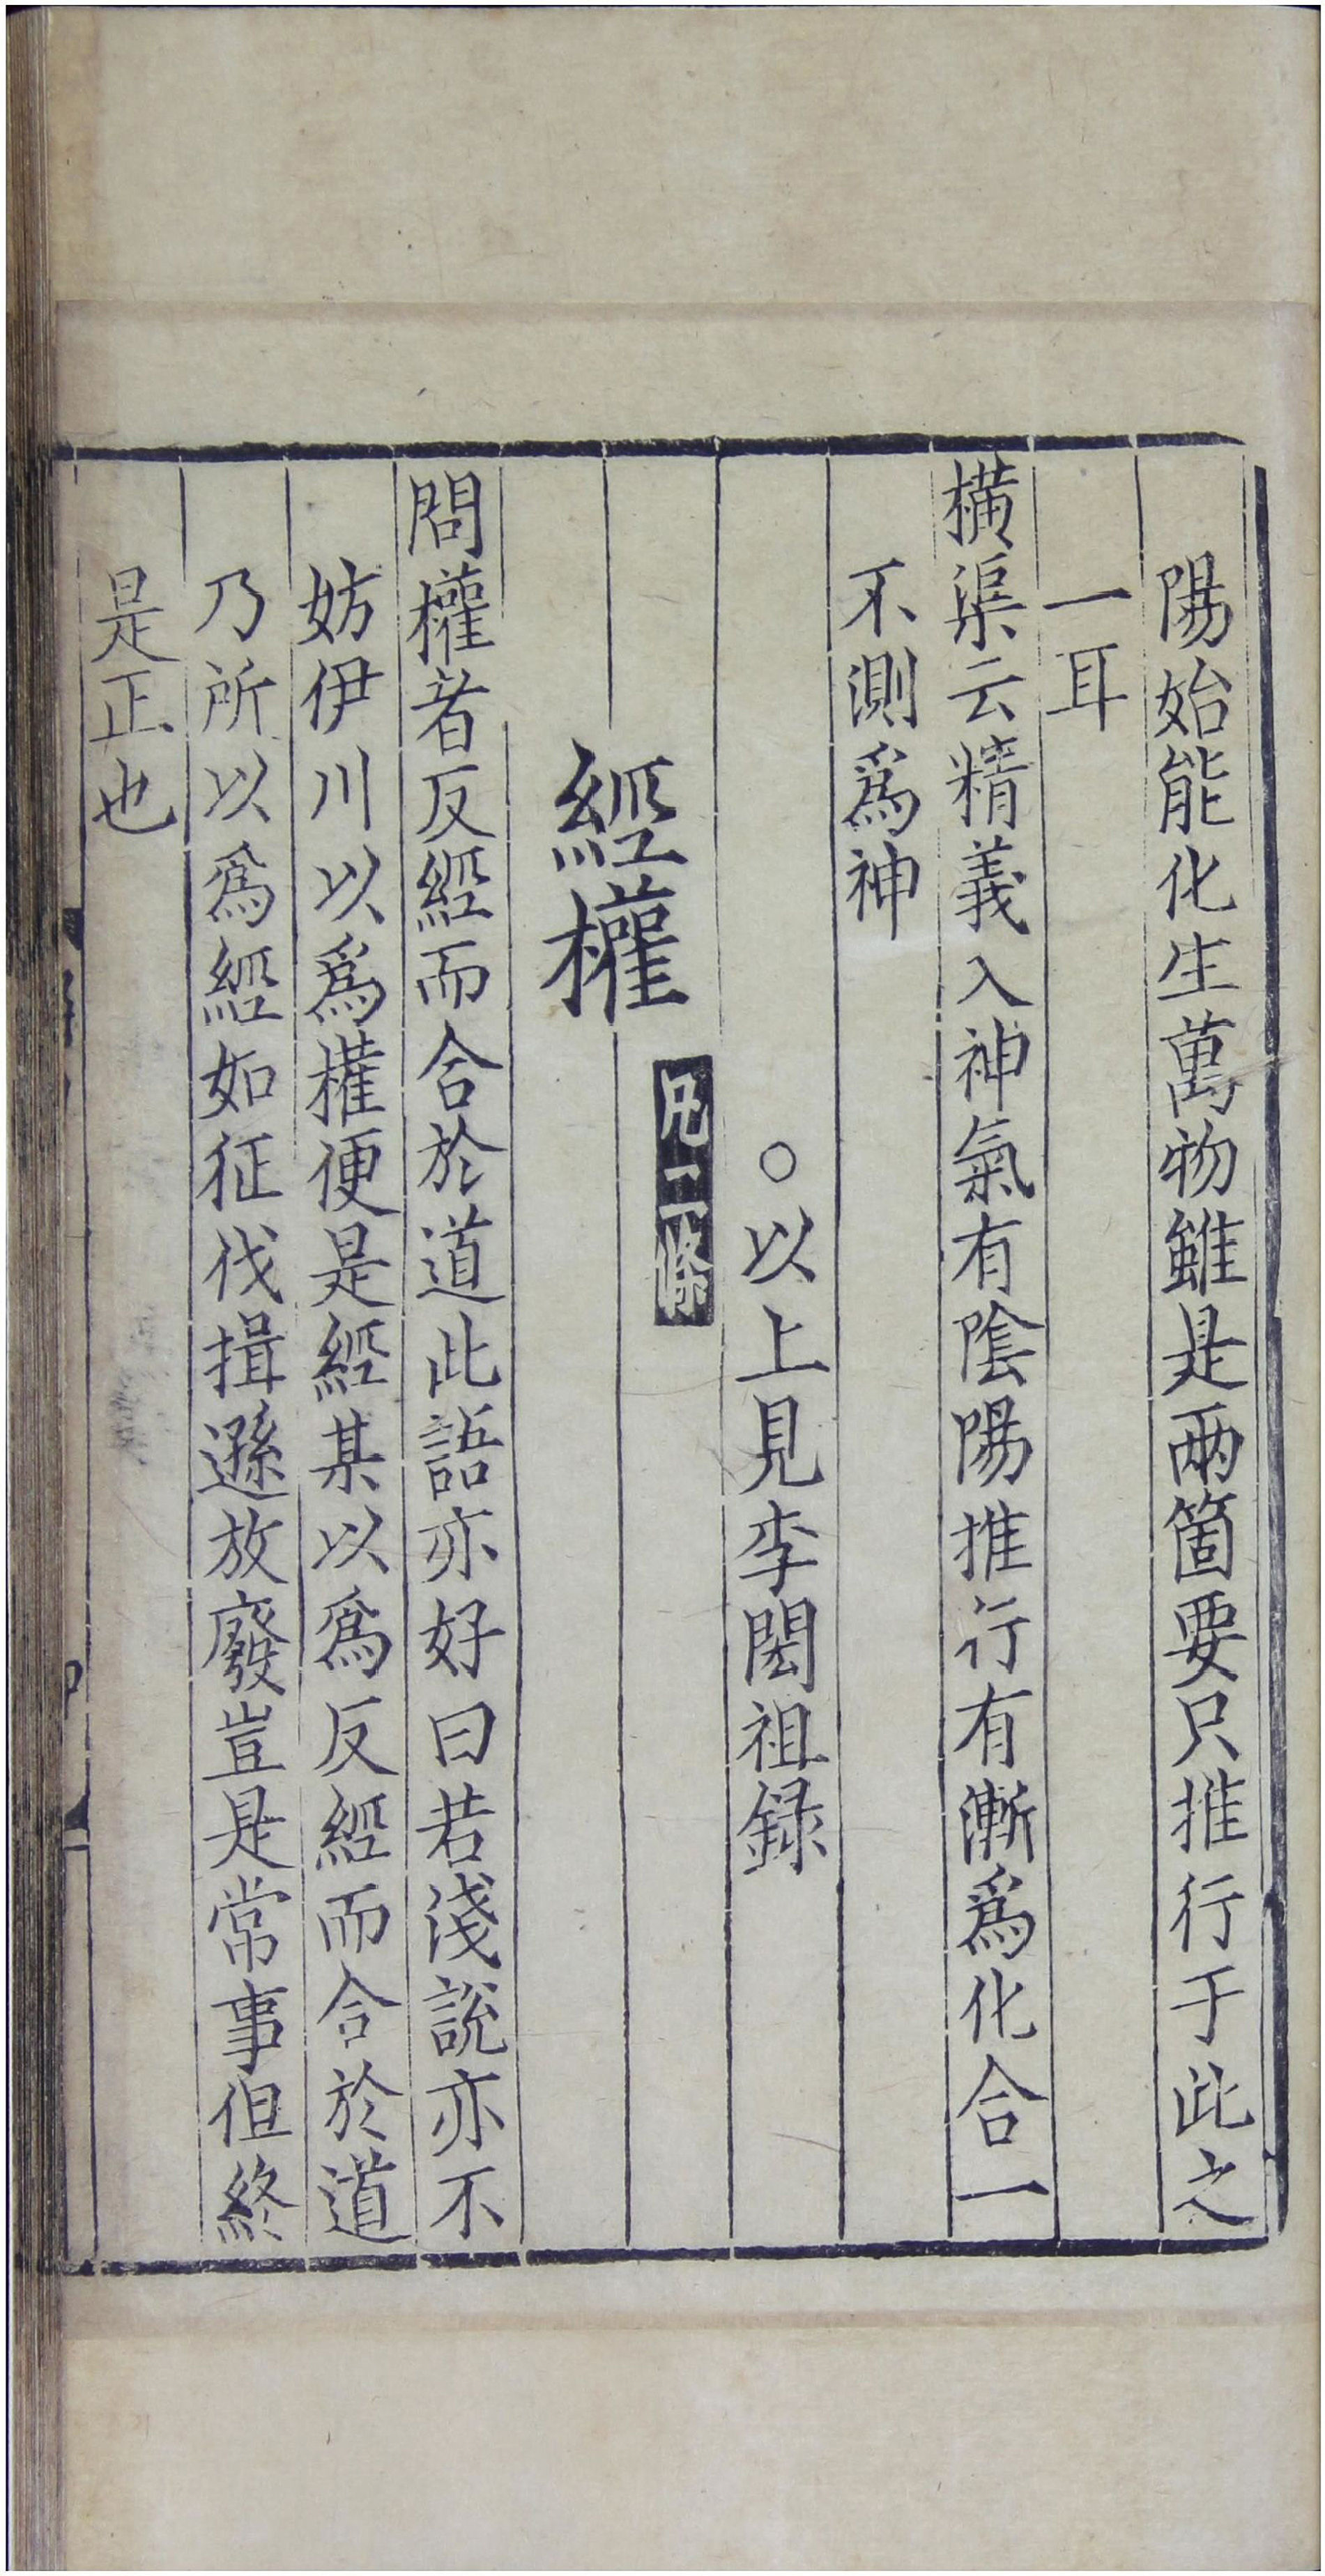 陽始能化生萬物雖是兩箇要只推行于此之
一耳
橫渠云精義入神氣有陰陽推行有漸爲化合一
不測爲神
○以上見李閎祖録
經權
凡二條
問權者反經而合於道此語亦好曰若淺說亦不
妨伊川以爲權便是經某以爲反經而合於道
乃所以爲經如征伐揖遜放廢豈是常事但終
是正也